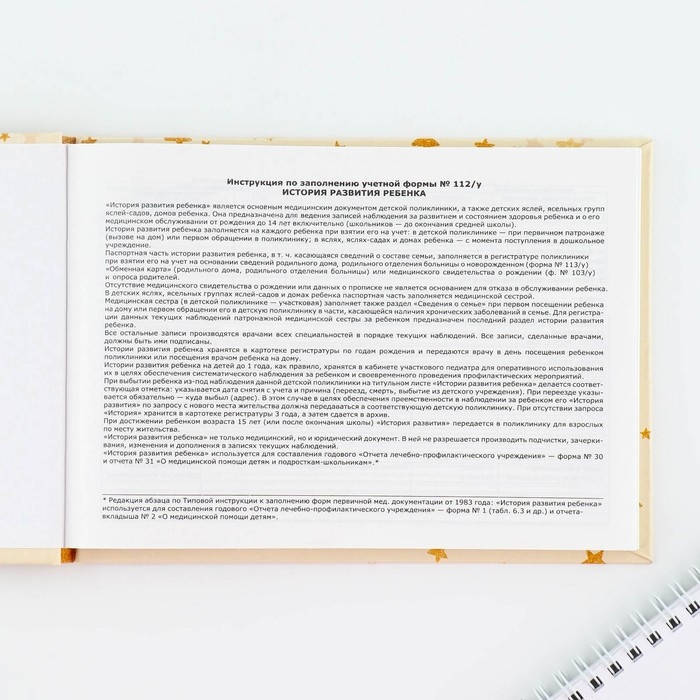 Инструкция по заполнению учетной формы № 112/у
ИСТОРИЯ РАЗВИТИЯ РЕБЕНКА
«История развития ребенка» является основным медицинским документом детской поликлиники, а также детских яслей, ясельных групп
яслей-садов, домов ребенка. Она предназначена для ведения записей наблюдения за развитием и состоянием здоровья ребенка и о его
медицинском обслуживании от рождения до 14 лет включительно (школьников — до окончания средней школы).
История развития ребенка заполняется на каждого ребенка при взятии его на учет: в детской поликлинике — при первичном патронаже
(вызове на дом) или первом обращении в поликлинику; в яслях, яслях-садах и домах ребенка — с момента поступления в дошкольное
учреждение.
Паспортная часть истории развития ребенка, в т. ч. касающаяся сведений о составе семьи, заполняется в регистратуре поликлиники
при взятии его на учет на основании сведений родильного дома, родильного отделения больницы о новорожденном (форма № 113/у)
«Обменная карта» (родильного дома, родильного отделения больницы) или медицинского свидетельства о рождении (ф. № 103/у)
и опроса родителей.
Отсутствие медицинского свидетельства о рождении или данных о прописке не является основанием для отказа в обслуживании ребенка.
В детских яслях, ясельных группах яслей-садов и домах ребенка паспортная часть заполняется медицинской сестрой.
Медицинская сестра (в детской поликлинике — участковая) заполняет также раздел «Сведения о семье» при первом посещении ребенка
на дому или первом обращении его в детскую поликлинику в части, касающейся наличия хронических заболеваний в семье. Для регистра-
ции данных текущих наблюдений патронажной медицинской сестры за ребенком предназначен последний раздел истории развития
ребенка.
Все остальные записи производятся врачами всех специальностей в порядке текущих наблюдений. Все записи, сделанные врачами,
должны быть ими подписаны.
Истории развития ребенка хранятся в картотеке регистратуры по годам рождения и передаются врачу в день посещения ребенком
поликлиники или посещения врачом ребенка на дому.
Истории развития ребенка на детей до 1 года, как правило, хранятся в кабинете участкового педиатра для оперативного использования
их в целях обеспечения систематического наблюдения за ребенком и своевременного проведения профилактических мероприятий.
При выбытии ребенка из-под наблюдения данной детской поликлиники на титульном листе «Истории развития ребенка» делается соответ-
ствующая отметка: указывается дата снятия с учета и причина (переезд, смерть, выбытие из детского учреждения). При переезде указы-
вается обязательно — куда выбыл (адрес). В этом случае в целях обеспечения преемственности в наблюдении за ребенком его «История
развития» по запросу с нового места жительства должна передаваться в соответствующую детскую поликлинику. При отсутствии запроса
«История» хранится в картотеке регистратуры 3 года, а затем сдается в архив.
При достижении ребенком возраста 15 лет (или после окончания школы) «История развития» передается в поликлинику для взрослых
по месту жительства.
«История развития ребенка» не только медицинский, но и юридический документ. В ней не разрешается производить подчистки, зачерки-
вания, изменения и дополнения в записях текущих наблюдений.
«История развития ребенка» используется для составления годового «Отчета лечебно-профилактического учреждения» — форма № 30
и отчета № 31 «О медицинской помощи детям и подросткам-школьникам».*
* Редакция абзаца по Типовой инструкции к заполнению форм первичной мед. документации от 1983 года: «История развития ребенка»
используется для составления годового «Отчета лечебно-профилактического учреждения» — форма № 1 (табл. 6.3 и др.) и отчета-
вкладыша № 2 «О медицинской помощи детям».